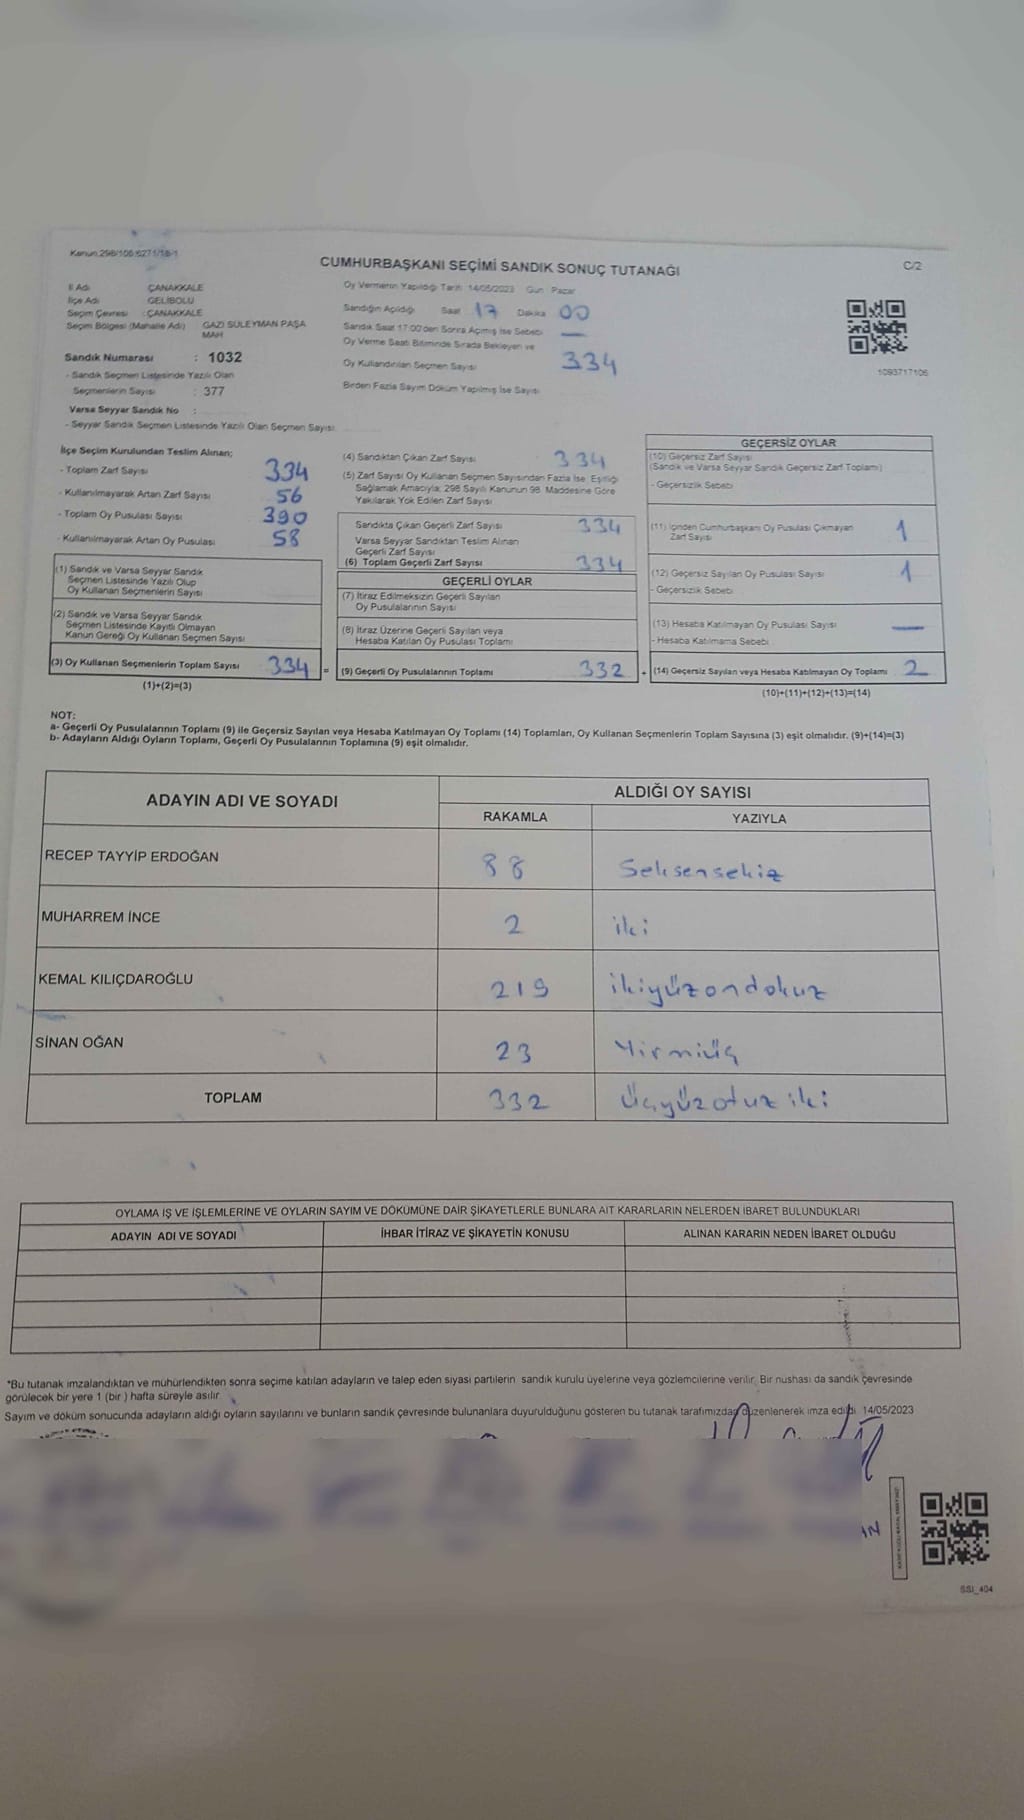 Kanun:298/106;6271/18-1
CUMHURBAŞKANI SEÇİMİ SANDIK SONUÇ TUTANAĞI
C/2
İl Adı ÇANAKKALE
İlçe Adı GELİBOLU
Seçim Çevresi : ÇANAKKALE
Seçim Bölgesi (Mahalle Adı) GAZİ SÜLEYMAN PAŞA MAH
Sandık Numarası : 1032
- Sandık Seçmen Listesinde Yazılı Olan
Seçmenlerin Sayısı : 377
Varsa Seyyar Sandık No :
- Seyyar Sandık Seçmen Listesinde Yazılı Olan Seçmen Sayısı:
Oy Vermenin Yapıldığı Tarih 14/05/2023 Gün : Pazar
Sandığın Açıldığı Saat 17 Dakika 00
Sandık Saat 17:00'den Sonra Açımış İse Sebebi —
Oy Verme Saati Bitiminde Sırada Bekleyen ve
Oy Kullandırılan Seçmen Sayısı 334
Birden Fazla Sayım Döküm Yapılmış İse Sayısı
1093717106
İlçe Seçim Kurulundan Teslim Alınan;
- Toplam Zarf Sayısı 334
- Kullanılmayarak Artan Zarf Sayısı 56
- Toplam Oy Pusulası Sayısı 390
- Kullanılmayarak Artan Oy Pusulası 58
(1) Sandık ve Varsa Seyyar Sandık
Seçmen Listesinde Yazılı Olup
Oy Kullanan Seçmenlerin Sayısı
(2) Sandık ve Varsa Seyyar Sandık
Seçmen Listesinde Kayıtlı Olmayan
Kanun Gereği Oy Kullanan Seçmen Sayısı
(3) Oy Kullanan Seçmenlerin Toplam Sayısı 334 =
(1)+(2)=(3)
(4) Sandıktan Çıkan Zarf Sayısı 334
(5) Zarf Sayısı Oy Kullanan Seçmen Sayısından Fazla İse, Eşitliği
Sağlamak Amacıyla; 298 Sayılı Kanunun 98. Maddesine Göre
Yakılarak Yok Edilen Zarf Sayısı
Sandıkta Çıkan Geçerli Zarf Sayısı 334
Varsa Seyyar Sandıktan Teslim Alınan
Geçerli Zarf Sayısı
(6) Toplam Geçerli Zarf Sayısı 334
GEÇERLİ OYLAR
(7) İtiraz Edilmeksizin Geçerli Sayılan
Oy Pusulalarının Sayısı
(8) İtiraz Üzerine Geçerli Sayılan veya
Hesaba Katılan Oy Pusulası Toplamı
(9) Geçerli Oy Pusulalarının Toplamı 332 +
GEÇERSİZ OYLAR
(10) Geçersiz Zarf Sayısı
(Sandık ve Varsa Seyyar Sandık Geçersiz Zarf Toplamı)
- Geçersizlik Sebebi
(11) İçinden Cumhurbaşkanı Oy Pusulası Çıkmayan
Zarf Sayısı 1
(12) Geçersiz Sayılan Oy Pusulası Sayısı 1
- Geçersizlik Sebebi
(13) Hesaba Katılmayan Oy Pusulası Sayısı —
- Hesaba Katılmama Sebebi
(14) Geçersiz Sayılan veya Hesaba Katılmayan Oy Toplamı 2
(10)+(11)+(12)+(13)=(14)
NOT:
a- Geçerli Oy Pusulalarının Toplamı (9) ile Geçersiz Sayılan veya Hesaba Katılmayan Oy Toplamı (14) Toplamları, Oy Kullanan Seçmenlerin Toplam Sayısına (3) eşit olmalıdır. (9)+(14)=(3)
b- Adayların Aldığı Oyların Toplamı, Geçerli Oy Pusulalarının Toplamına (9) eşit olmalıdır.
ADAYIN ADI VE SOYADI
ALDIĞI OY SAYISI
RAKAMLA YAZIYLA
RECEP TAYYİP ERDOĞAN 88 Seksensekiz
MUHARREM İNCE 2 iki
KEMAL KILIÇDAROĞLU 219 ikiyüzondokuz
SİNAN OĞAN 23 Yirmiüç
TOPLAM 332 Üçyüzotuziki
OYLAMA İŞ VE İŞLEMLERİNE VE OYLARIN SAYIM VE DÖKÜMÜNE DAİR ŞİKAYETLERLE BUNLARA AİT KARARLARIN NELERDEN İBARET BULUNDUKLARI
ADAYIN ADI VE SOYADI İHBAR İTİRAZ VE ŞİKAYETİN KONUSU ALINAN KARARIN NEDEN İBARET OLDUĞU
*Bu tutanak imzalandıktan ve mühürlendikten sonra seçime katılan adayların ve talep eden siyasi partilerin sandık kurulu üyelerine veya gözlemcilerine verilir. Bir nüshası da sandık çevresinde
görülecek bir yere 1 (bir ) hafta süreyle asılır.
Sayım ve döküm sonucunda adayların aldığı oyların sayılarını ve bunların sandık çevresinde bulunanlara duyurulduğunu gösteren bu tutanak tarafımızdan düzenlenerek imza edildi. 14/05/2023
SSI_404